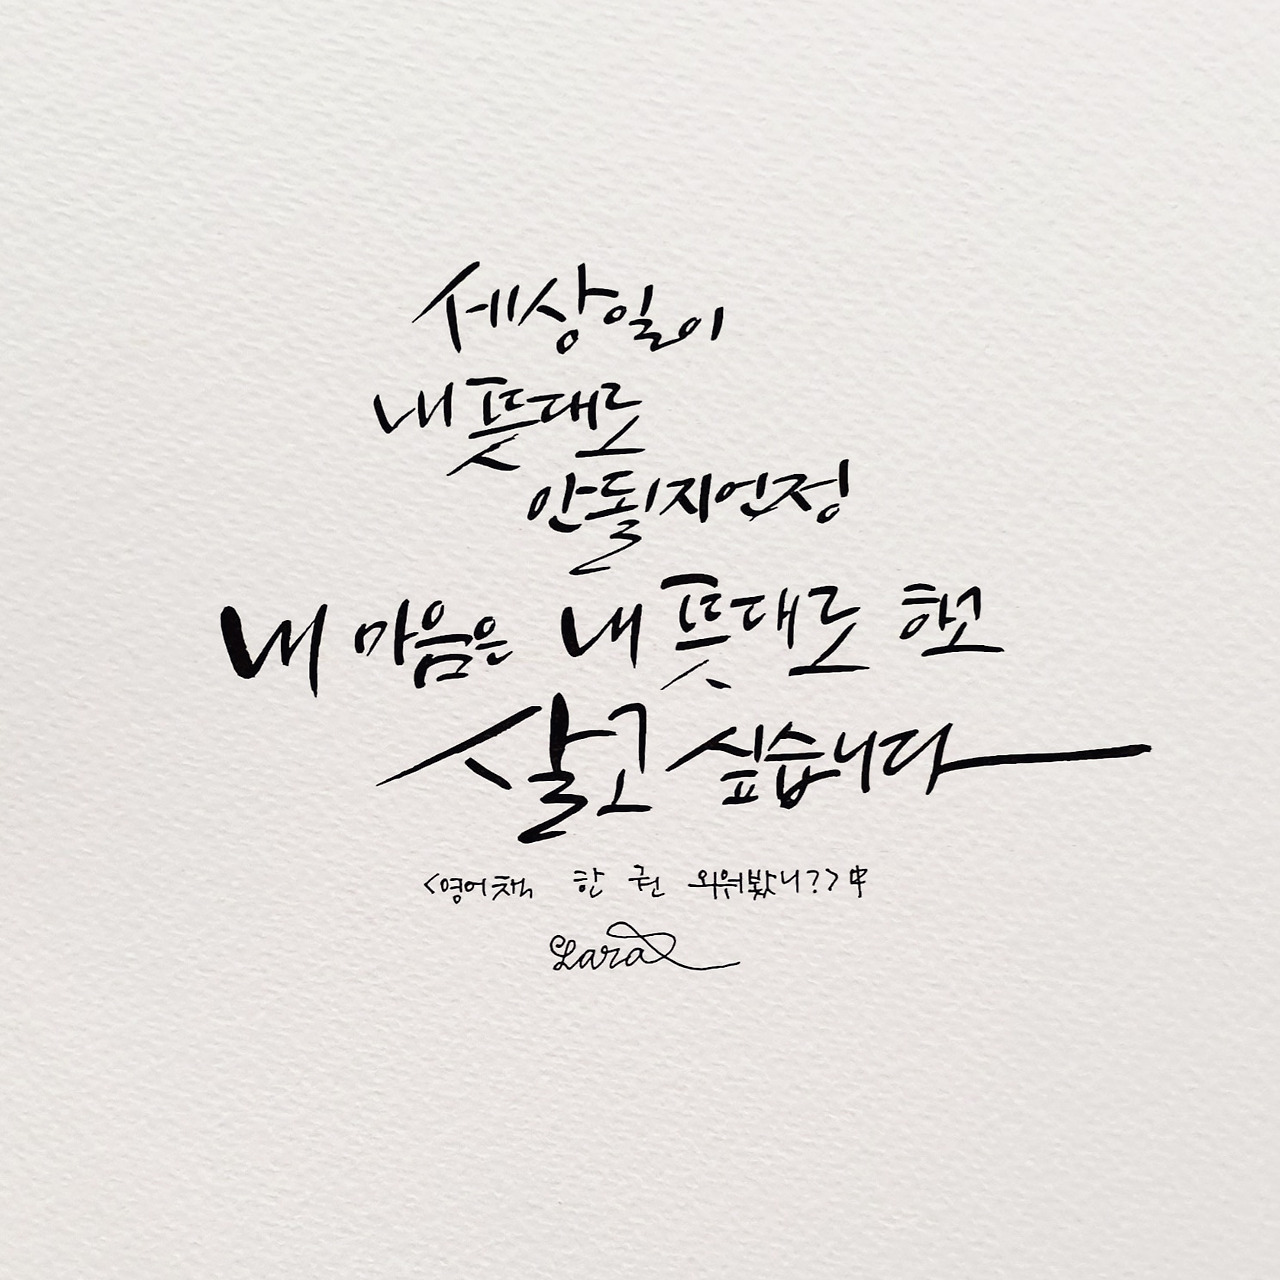 세상일이
내 뜻대로
안될지언정
내 마음은 내 뜻대로 하고
살고 싶습니다
<영어책 한 권 외워봤니?> 中
Lara